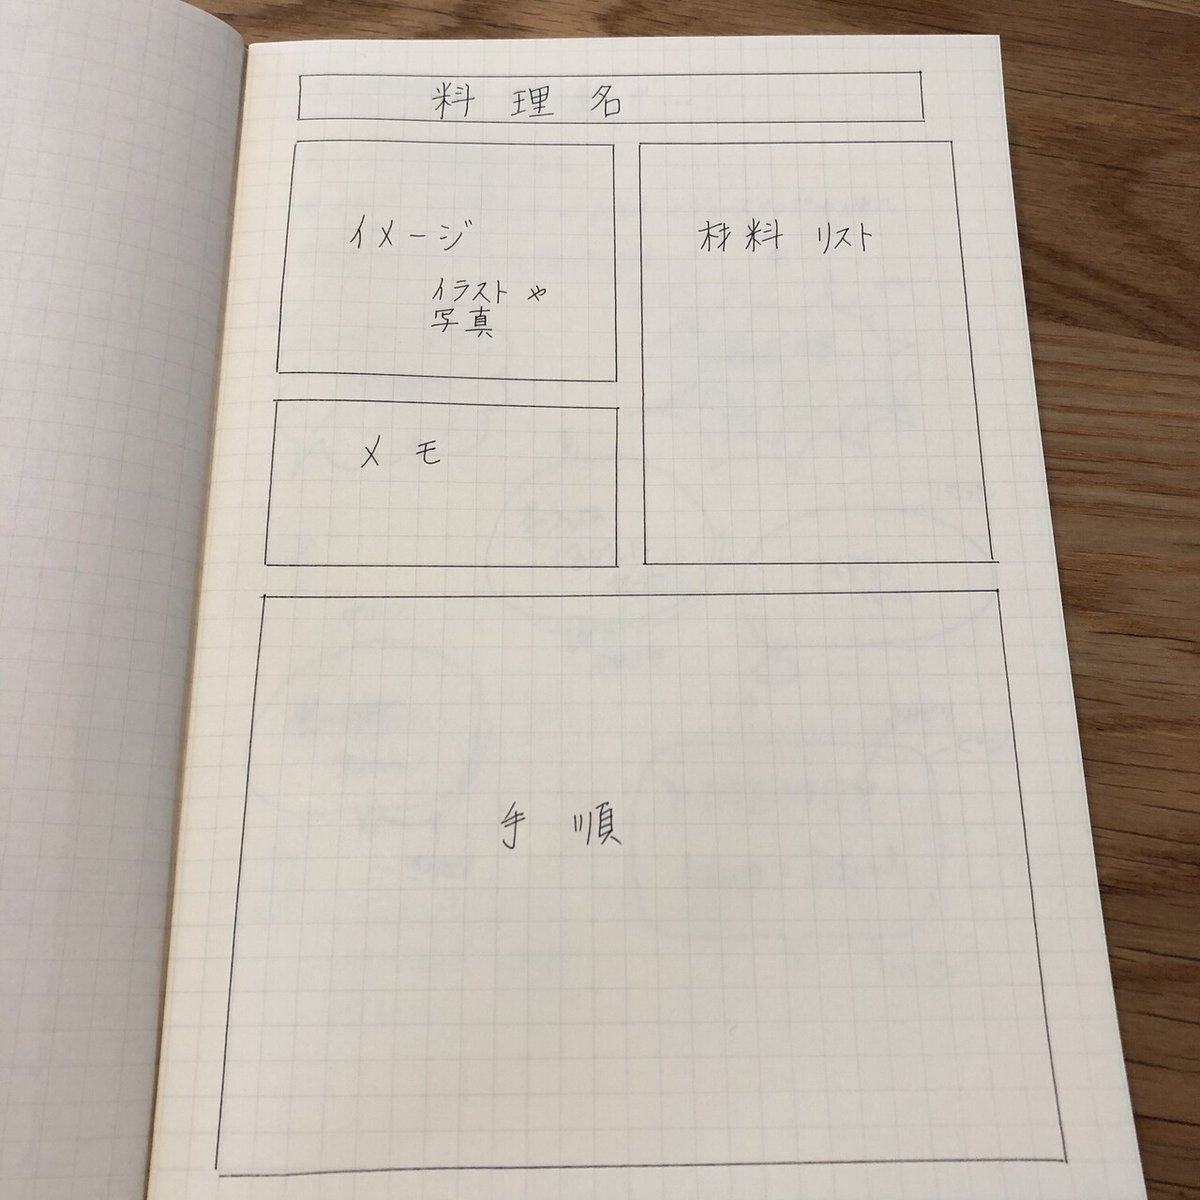 料理名
イメージ
イラストや
写真
材料リスト
メモ
手順